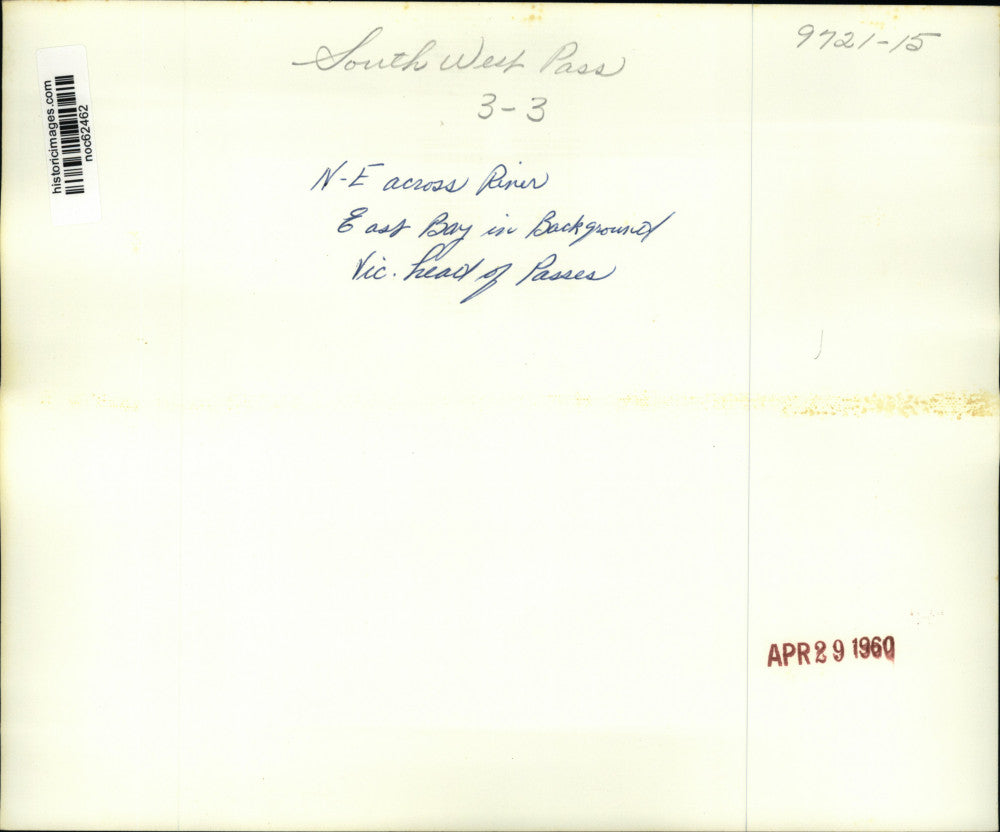 South West Pass
3-3
9721-15
historicimages.com
noc62462
N-E across River
East Bay in Background
Vic. head of Passes
APR 29 1960